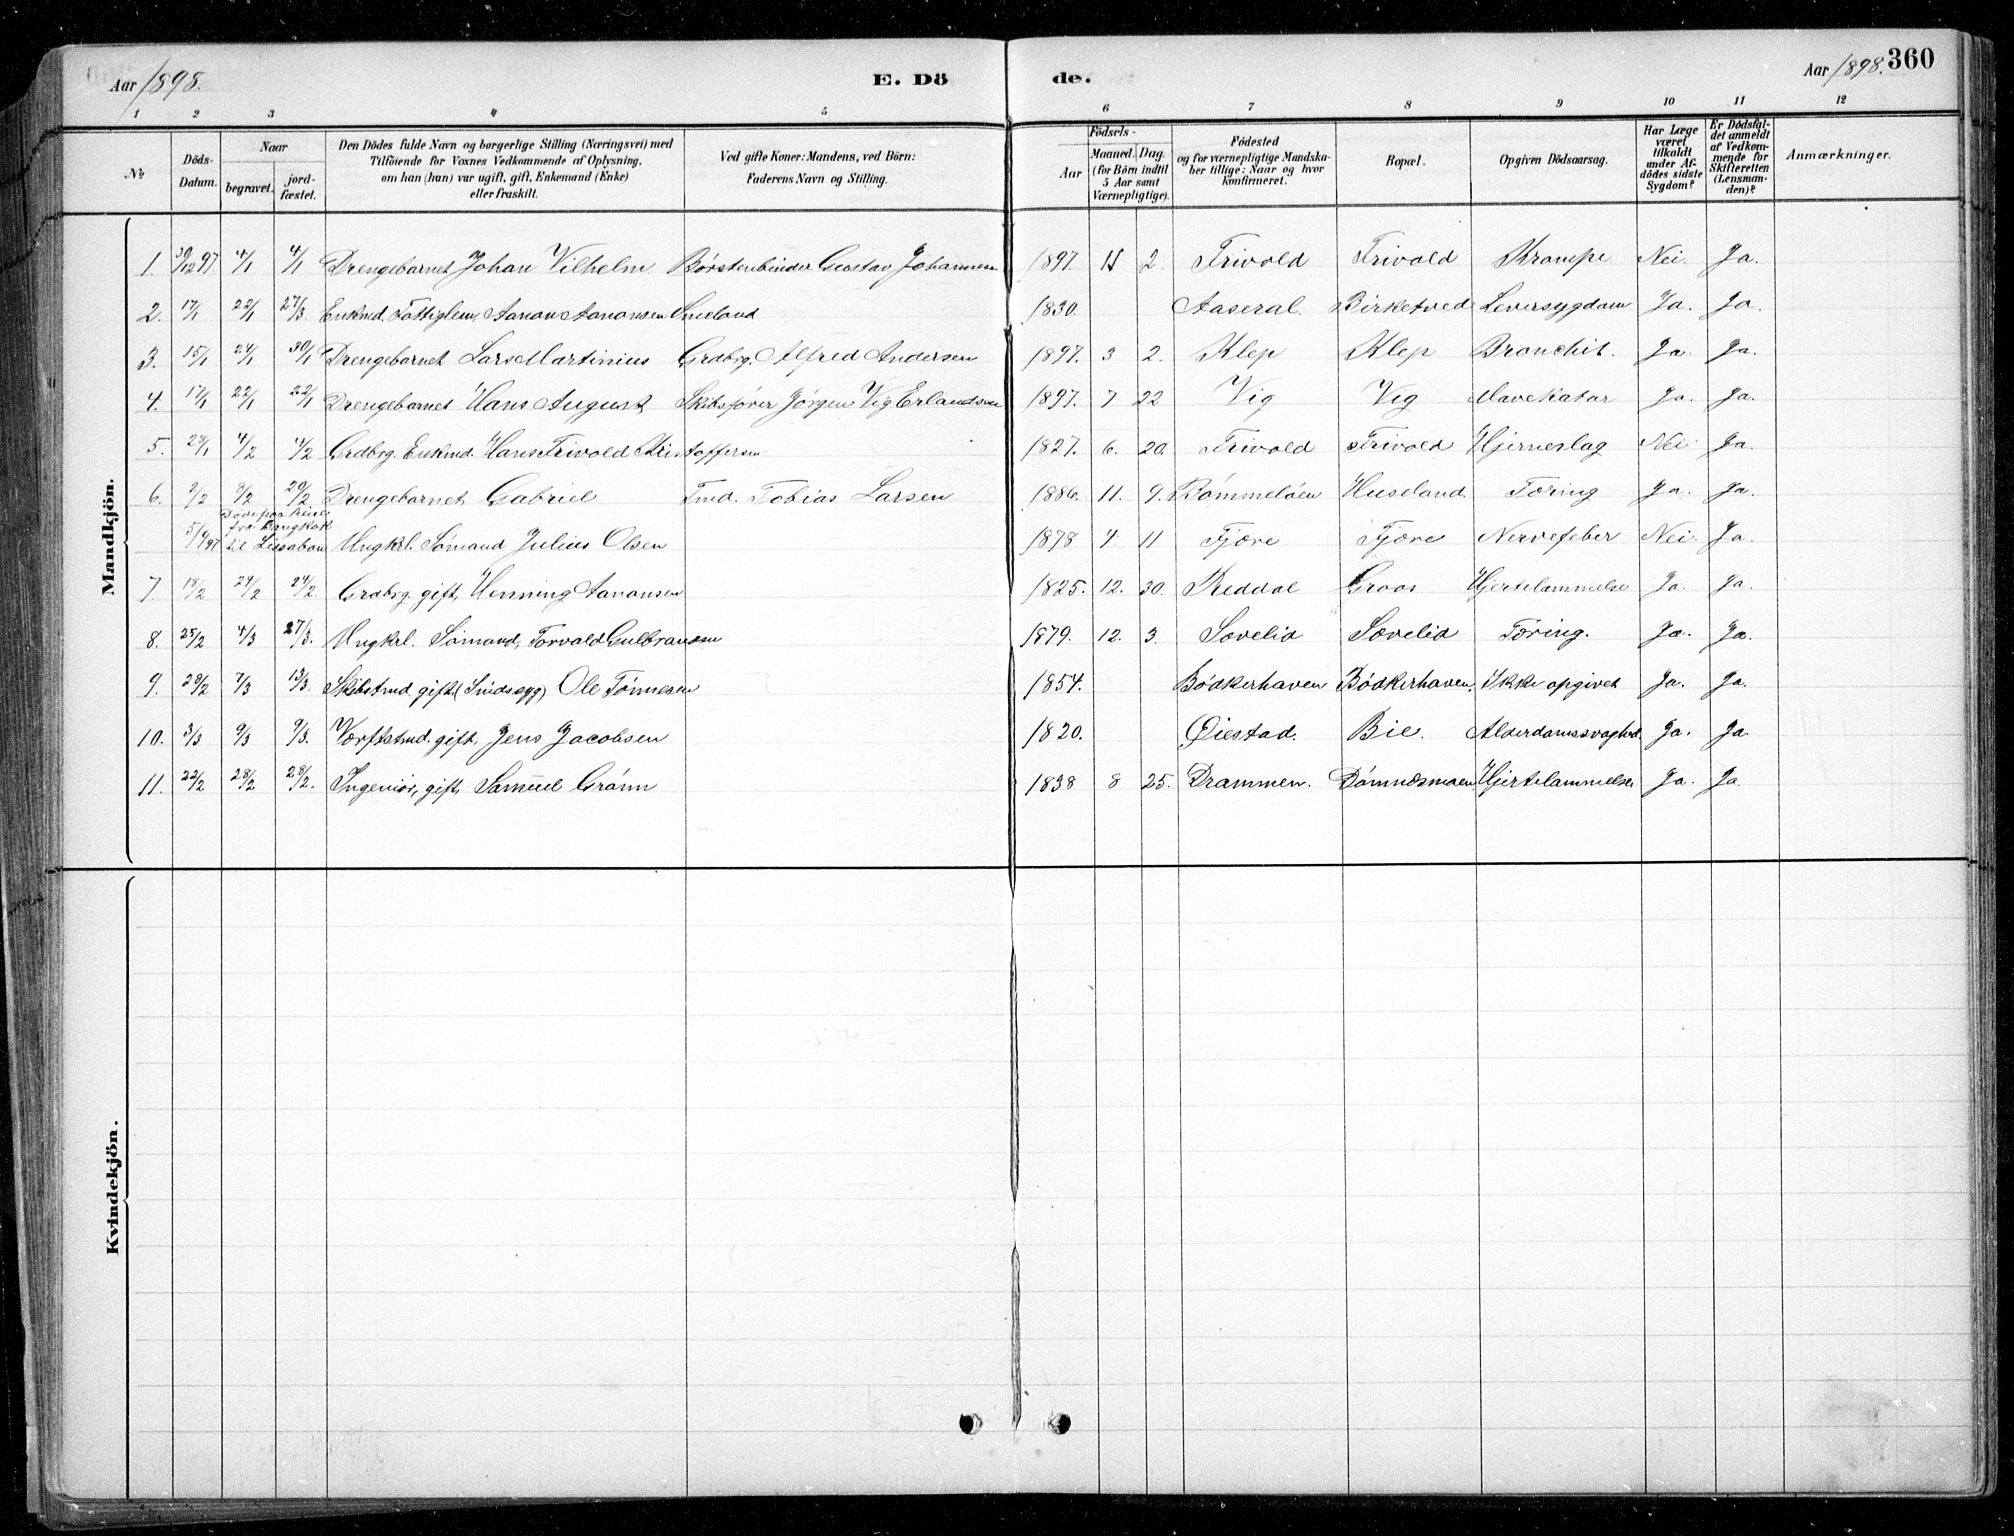 Aar 1898. E. Dö de. Aar 1898. 360
1 2 3 4 5 6 7 8 9 10 11 12
№ Döds-Datum. Naar begravet. jord-fæstet. Den Dödes fulde Navn og borgerlige Stilling (Næringsvei) med Tilföiende for Voxnes Vedkommende af Oplysning, om han (hun) var ugift, gift, Enkemand (Enke) eller fraskilt. Ved gifte Koner: Mandens, ved Börn: Faderens Navn og Stilling. Födsels- Aar Maaned. Dag. (for Börn indtil 5 Aar samt Værnepligtige). Födested og for værnepligtige Mandskaber tillige: Naar og hvor konfirmeret. Bopæl. Opgiven Dödsaarsag. Har Læge været tilkaldt under Afdödes sidste Sygdom? Er Dödsfaldet anmeldt af Vedkommende for Skifteretten (Lensmanden)? Anmærkninger.
Mandkjön.
1. 30/12 97 4/1 4/1 Drengebarnet Johan Vilhelm Börstenbinder Gustav Johannesen 1897. 11 2. Trivold Trivold Krampe Nei. Ja.
2. 17/1 22/1 27/3 Enkmd. Fattiglem, Aanon Aanonsen Sneland 1830. Aaseral. Birketved Leversygdom Ja. Ja.
3. 15/1 24/1 30/1 Drengebarnet Lars Martinius Grdbrg. Alfred Andersen 1897. 3 2. Klep Klep Bronchit. Ja. Ja.
4. 17/1 22/1 22/1 Drengebarnet Hans August Skibsfører Jörgen Vig Erlandsen 1897. 7 22 Vig Vig Mavekatar Ja. Ja.
5. 28/1 4/2 4/2 Grdbrg. Enkmd. Hans Trivold Kristoffersen 1827. 6. 20. Trivold Trivold Hjerneslag Nei. Ja.
6. 2/2 8/2 20/2 Drengebarnet Gabriel Tmd. Tobias Larsen 1886. 11. 9. Bömmelöen Huseland. Tæring Ja. Ja.
Döde paa Reise
fra Bangkok
5/9 97 til Lissabon Ungkrl. Sömand Julius Olsen 1878 4. 11 Fjære Fjære Nervefeber Nei. Ja.
7. 18/2 24/2 24/2. Grdbrg. gift, Henning Aanonsen 1825. 12. 30. Reddal Groos Hjertelammelse Ja. Ja.
8. 25/2 4/3 27/3. Ungkrl. Sömand, Torvald Gulbransen 1879. 12. 3. Sovelid Sovelid Tæring. Ja. Ja.
9. 28/2 7/3 13/3. Skibstmd. gift (Sindssyg) Ole Tönnesen 1854. Bödkerhaven Bödkerhaven. Ikke opgivet Ja. Ja.
10. 3/3 9/3 9/3. Værftstmd. gift, Jens Jacobsen 1820. Øiestad. Bie. Alderdomssvaghed. Ja. Ja.
11. 22/2 28/2 28/2. Ingeniör, gift, Samuel Grönn 1838 8 25. Drammen. Dömnesmoen Hjertelammelse Ja. Ja.
Kvindekjön.